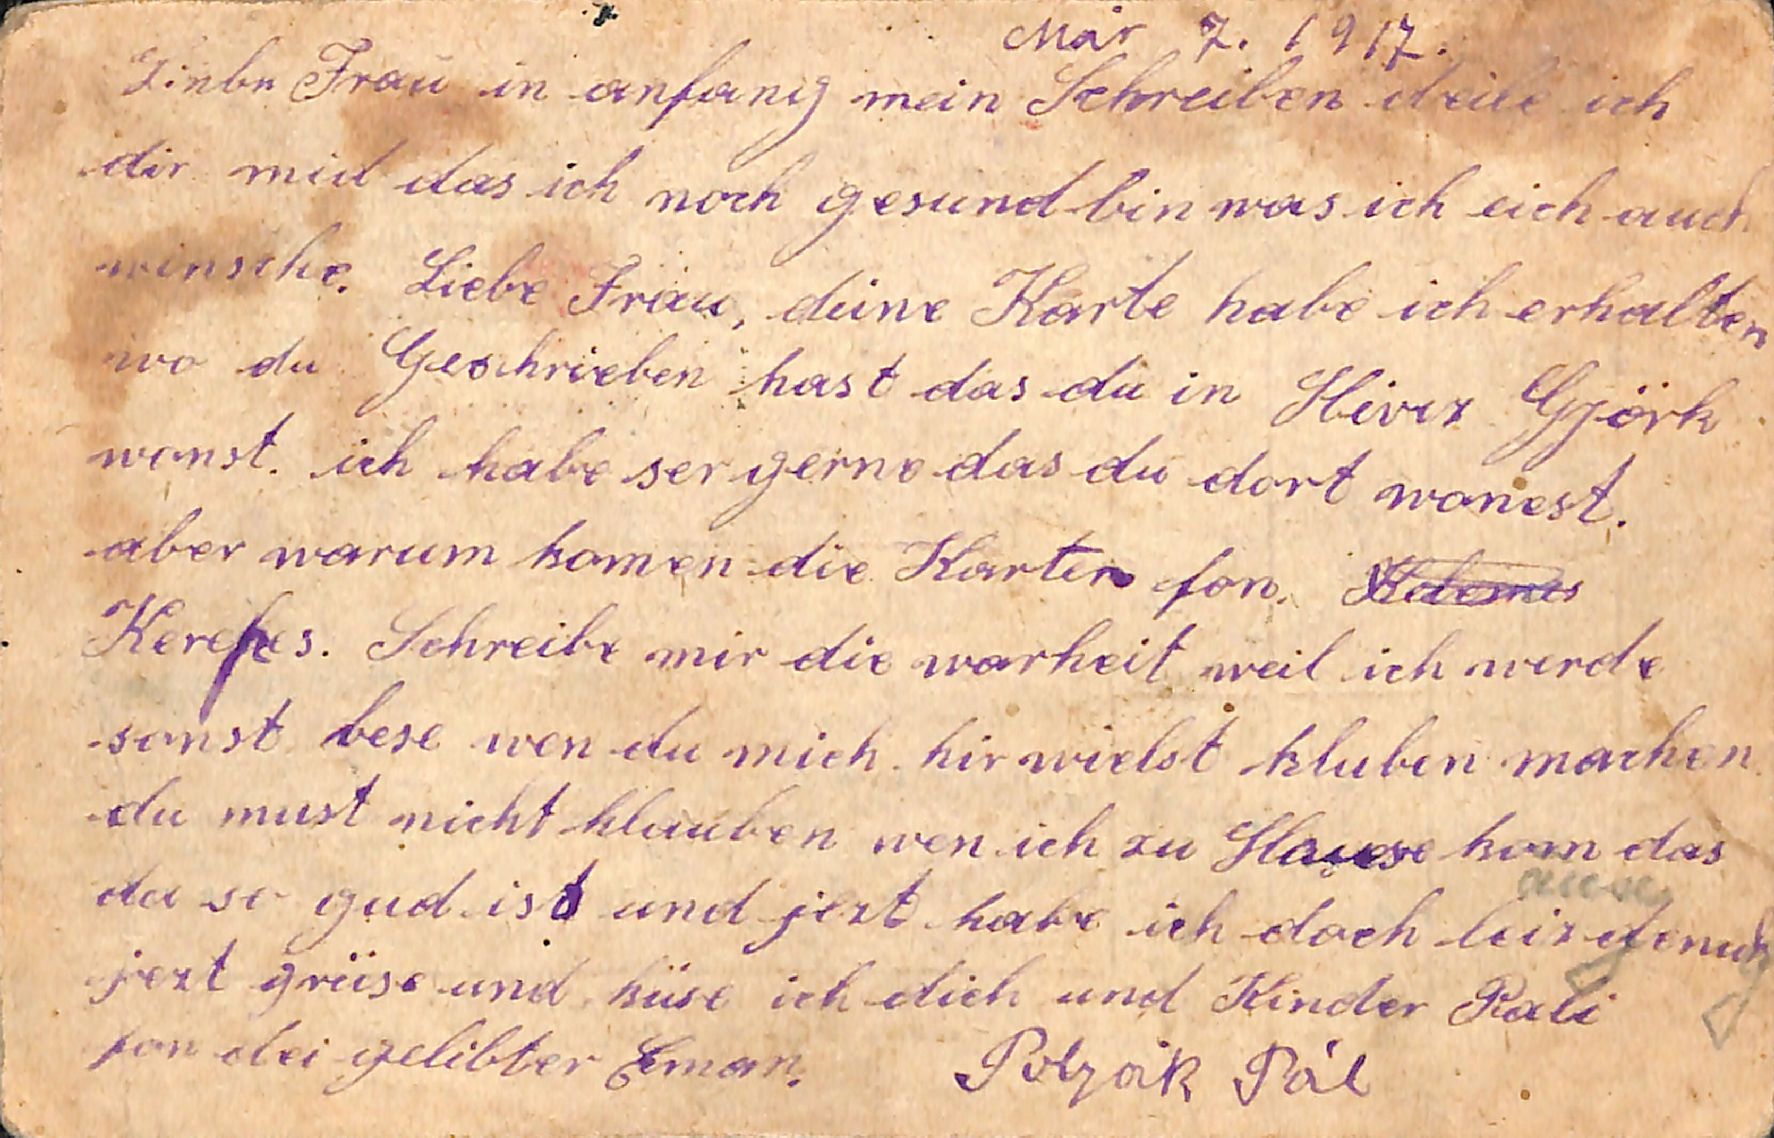 Mär 7. 1917.
Liebe Frau in anfang mein Schreiben deile ich
dir mid das ich noch gesund bin was ich eich auch
winsche. Liebe Frau, deine Karte habe ich erhalten
wo du Geschrieben hast das du in Hévix Györk
wonst. ich habe ser gerne das du dort wonest.
aber warum komen die Karten fon.
Kerepes. Schreibe mir die warheit weil ich werde
sonst bese wen du mich hir wielst kluben machen
du must nicht klauben wen ich zu Hause kom das
da so gud ist und jezt habe ich doch leiz genuch
jezt grüse und küse ich dich und Kinder Pali
fon dei gelibter Eman. Polyák Pál